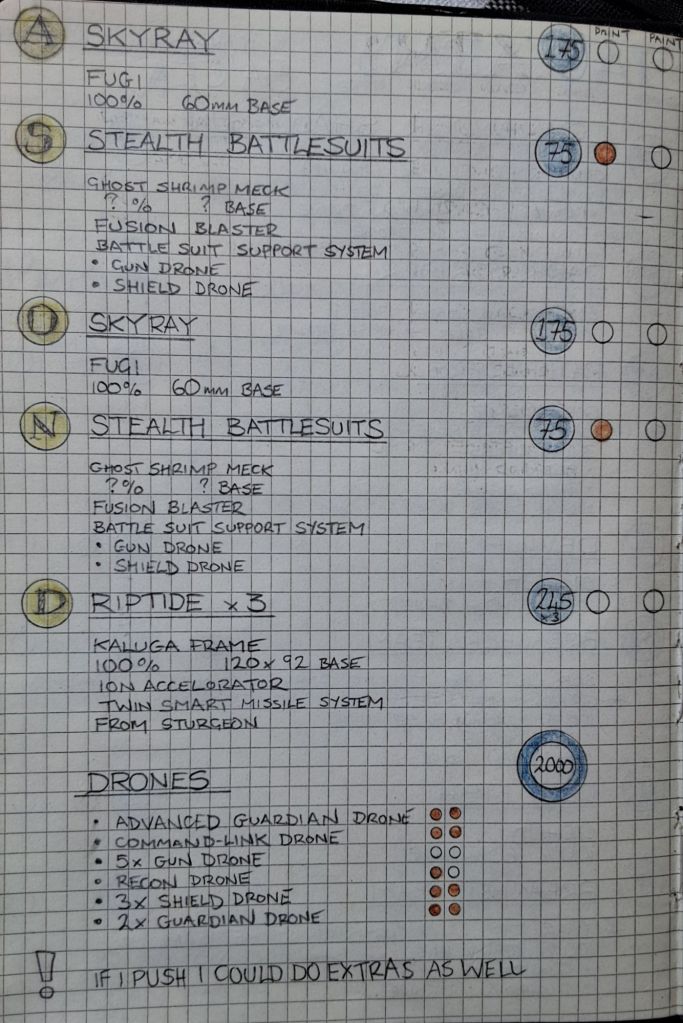 PRINT PAINT
A SKYRAY 175
FUGI
100% 60mm BASE
S STEALTH BATTLESUITS 75
GHOST SHRIMP MECK
? % ? BASE
FUSION BLASTER
BATTLE SUIT SUPPORT SYSTEM
• GUN DRONE
• SHIELD DRONE
O SKYRAY 175
FUGI
100% 60mm BASE
N STEALTH BATTLESUITS 75
GHOST SHRIMP MECK
?% ? BASE
FUSION BLASTER
BATTLE SUIT SUPPORT SYSTEM
• GUN DRONE
• SHIELD DRONE
D RIPTIDE x 3 245 x3
KALUGA FRAME
100% 120 x 92 BASE
ION ACCELORATOR
TWIN SMART MISSILE SYSTEM
FROM STURGEON
2000
DRONES
• ADVANCED GUARDIAN DRONE
• COMMAND-LINK DRONE
• 5x GUN DRONE
• RECON DRONE
• 3x SHIELD DRONE
• 2x GUARDIAN DRONE
! IF I PUSH I COULD DO EXTRAS AS WELL